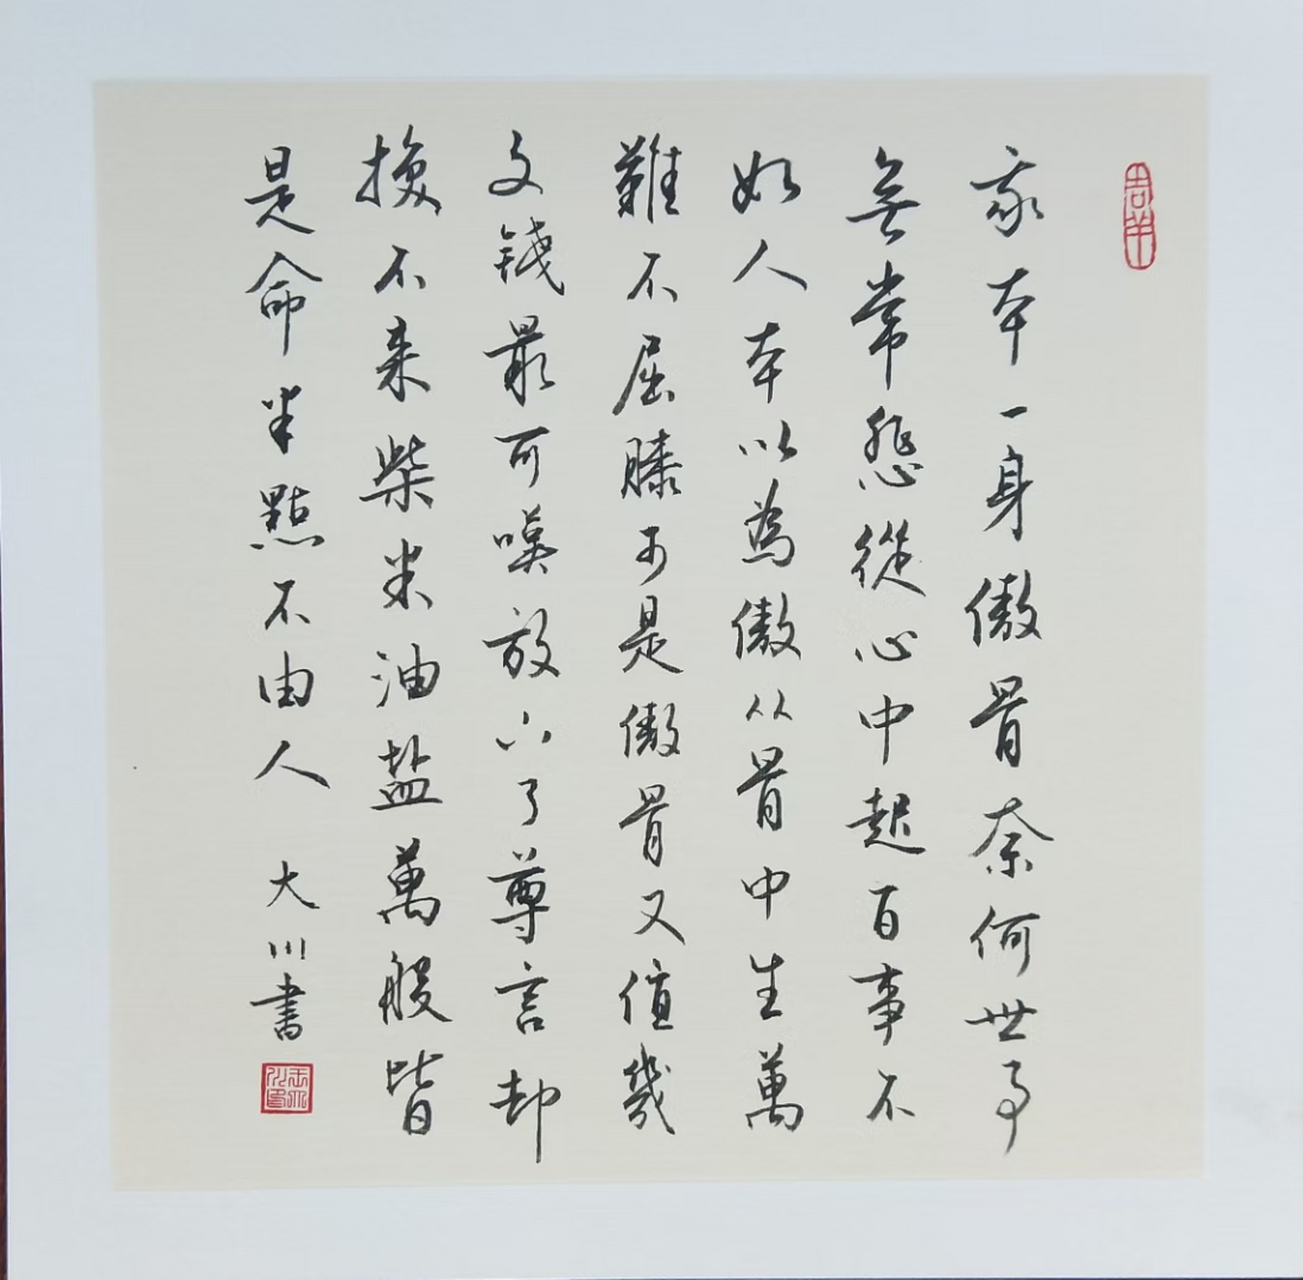 我本一身傲骨奈何世事
無常怨從心中起百事不
如人本以為傲从骨中生萬
難不屈膝可是傲骨又值幾
文錢最可嘆放下了尊言却
換不来柴米油盐萬般皆
是命半點不由人
大川書